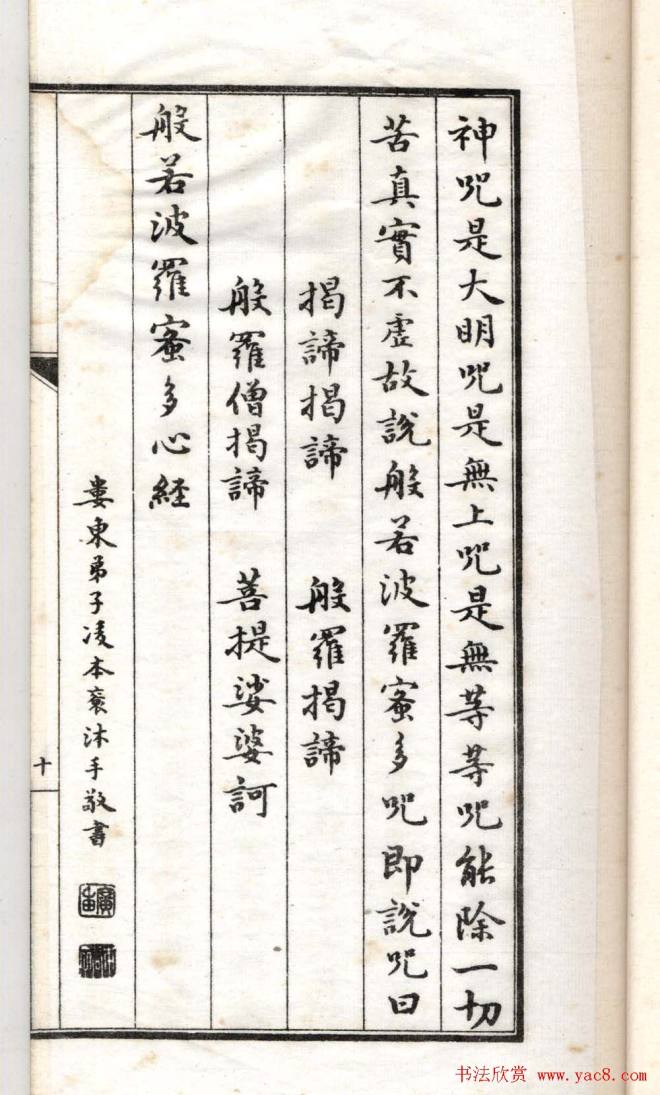 神咒是大明咒是無上咒是無等等咒能除一切
苦真實不虛故說般若波羅蜜多咒即說咒曰
揭諦揭諦 般羅揭諦
般羅僧揭諦 菩提娑婆訶
般若波羅蜜多心経
婁東弟子凌本裒沐手敬書
十
书法欣赏 www.yac8.com